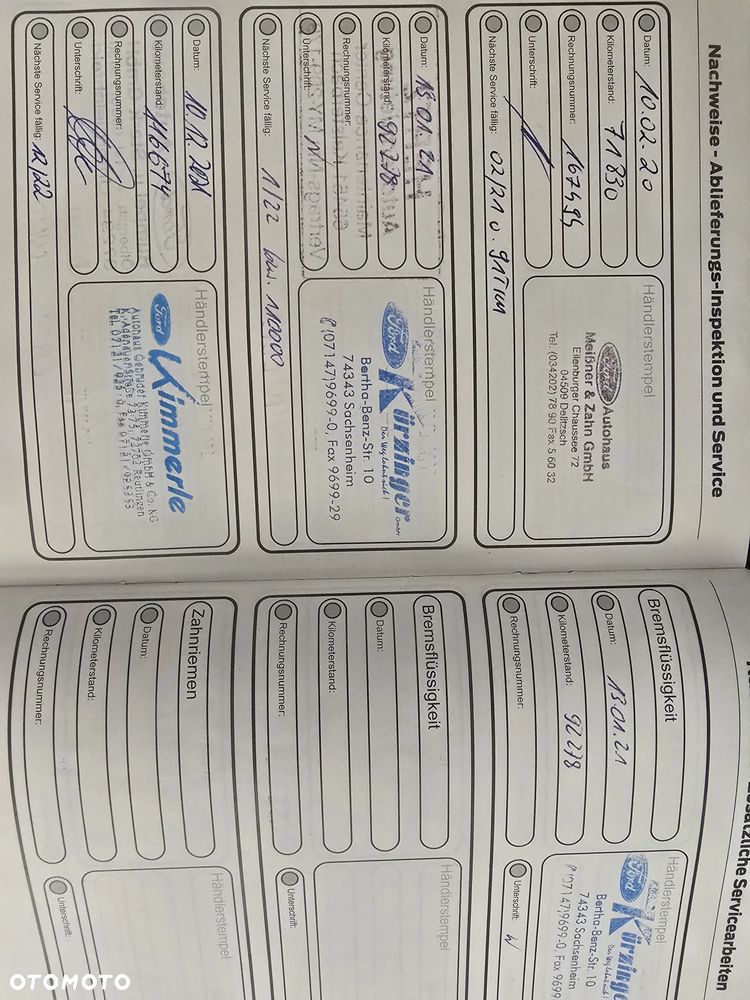 Nachweise - Ablieferungs-Inspektion und Service
Datum: 10.02.20
Kilometerstand: 71830
Rechnungsnummer: 167494
Unterschrift:
Nächste Service fällig: 02/21 o. 91Tkm
Händlerstempel
Ford Autohaus
Meißner & Zahn GmbH
Eilenburger Chaussee 72
04509 Delitzsch
Tel. (034202) 78 90 Fax 5 60 32
Datum: 13.01.21
Kilometerstand: 92278
Rechnungsnummer:
Unterschrift:
Nächste Service fällig: 1/22 bzw. 110000
Händlerstempel
Ford Kürzinger GmbH
Der Weg lohnt sich!
Bertha-Benz-Str. 10
74343 Sachsenheim
(07147)9699-0, Fax 9699-29
Datum: 10.12.2021
Kilometerstand: 116674
Rechnungsnummer:
Unterschrift:
Nächste Service fällig: 12/22
Händlerstempel
Ford Kimmerle
Autohaus Gebrüder Kimmerle GmbH & Co. KG
Zusätzliche Servicearbeiten
Bremsflüssigkeit
Datum: 13.01.21
Kilometerstand: 92278
Rechnungsnummer:
Händlerstempel
Ford Kürzinger
Der Weg lohnt sich!
Bertha-Benz-Str. 10
74343 Sachsenheim
(07147)9699-0, Fax 9699
Unterschrift:
Bremsflüssigkeit
Datum:
Kilometerstand:
Rechnungsnummer:
Händlerstempel
Unterschrift:
Zahnriemen
Datum:
Kilometerstand:
Rechnungsnummer:
Händlerstempel
Unterschrift:
OTOMOTO